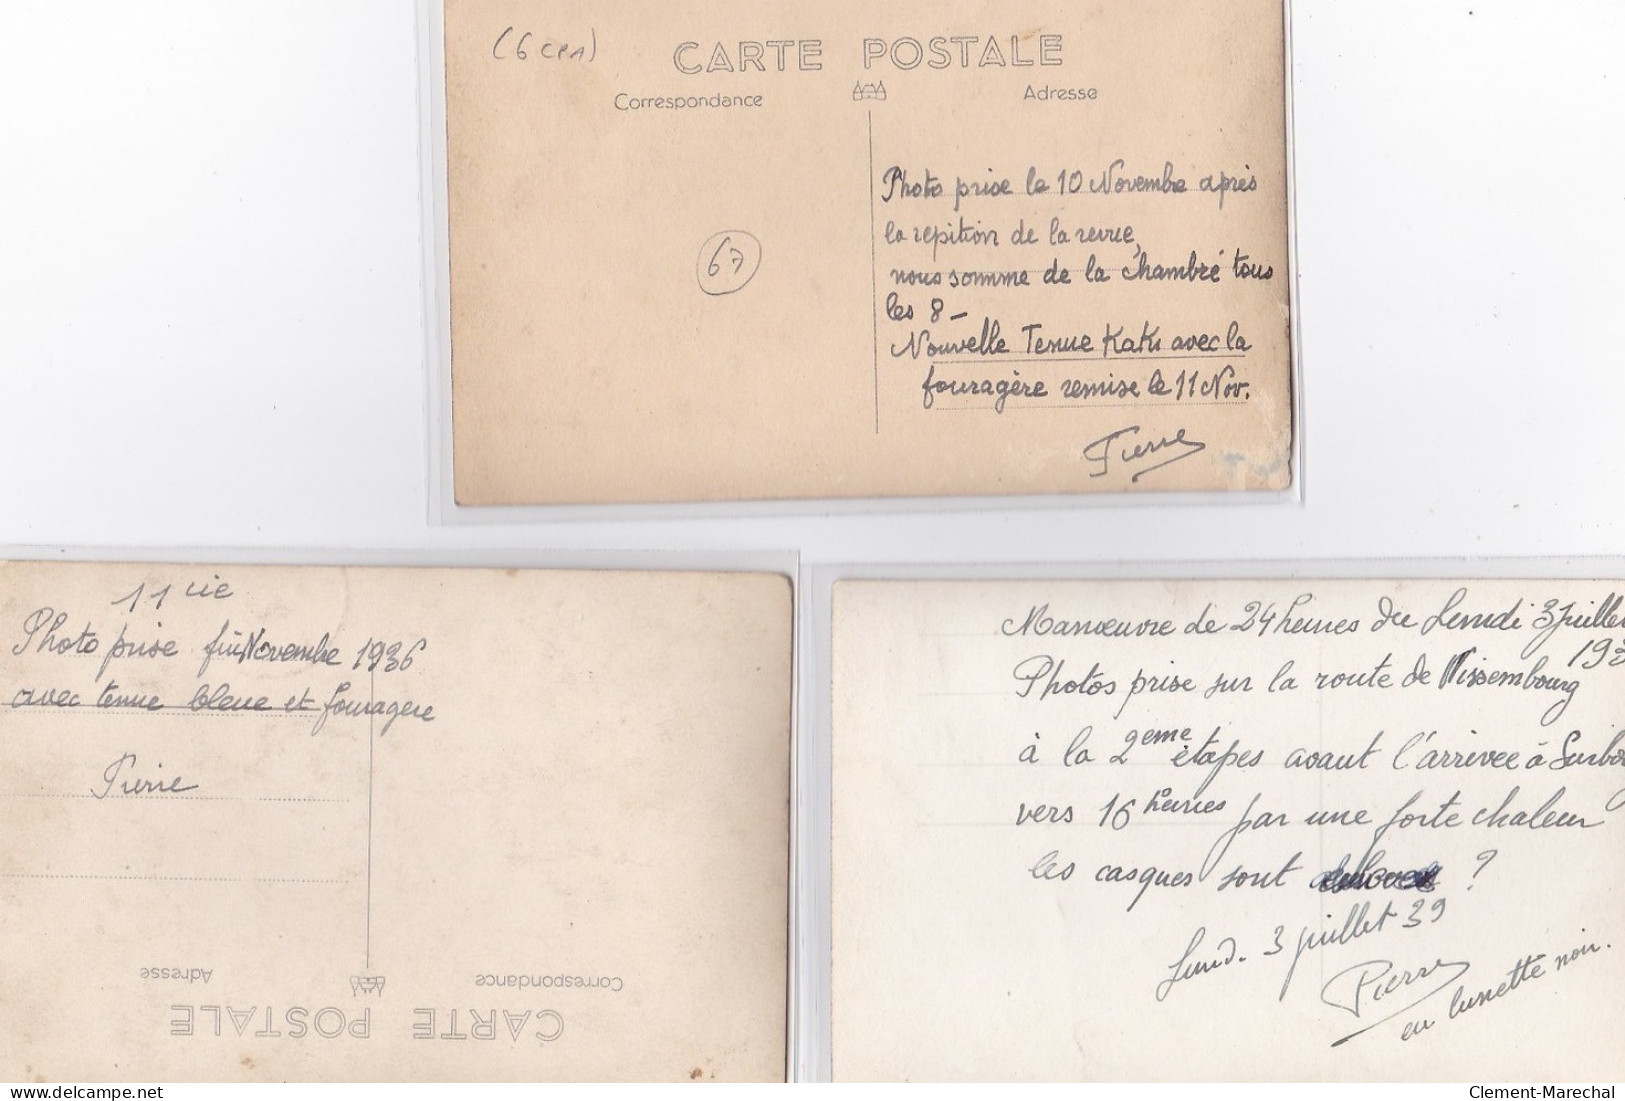 (6 CPA)
CARTE POSTALE
Correspondance
Adresse
Photo prise le 10 Novembre après
la repition de la revue,
nous somme de la chambré tous
les 8 -
Nouvelle Tenue Kaki avec la
fouragère remise le 11 Nov.
Pierre
67
11 cie
Photo prise fin Novembre 1936
avec tenue bleue et fouragere
Pierre
Correspondance
Adresse
CARTE POSTALE
Manœuvre de 24 heures du Lundi 3 juillet
193
Photos prise sur la route de Wissembourg
à la 2eme étapes avant l'arrivee à Surbo
vers 16 heures par une forte chaleur
les casques sont ?
Lund. 3 juillet 39
Pierre
en lunette noir.
Clement-Marechal